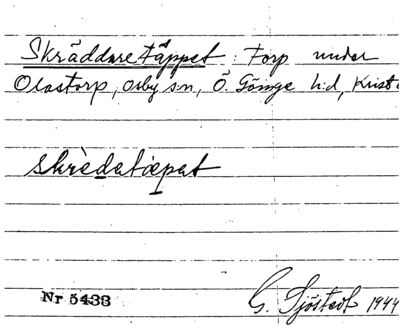 Skräddaretäppet : Torp under
Olastorp, Osby s:n, Ö. Göinge h:d, Krist
skrèdatæpat
Nr 5433
G. Sjöstedt 1944